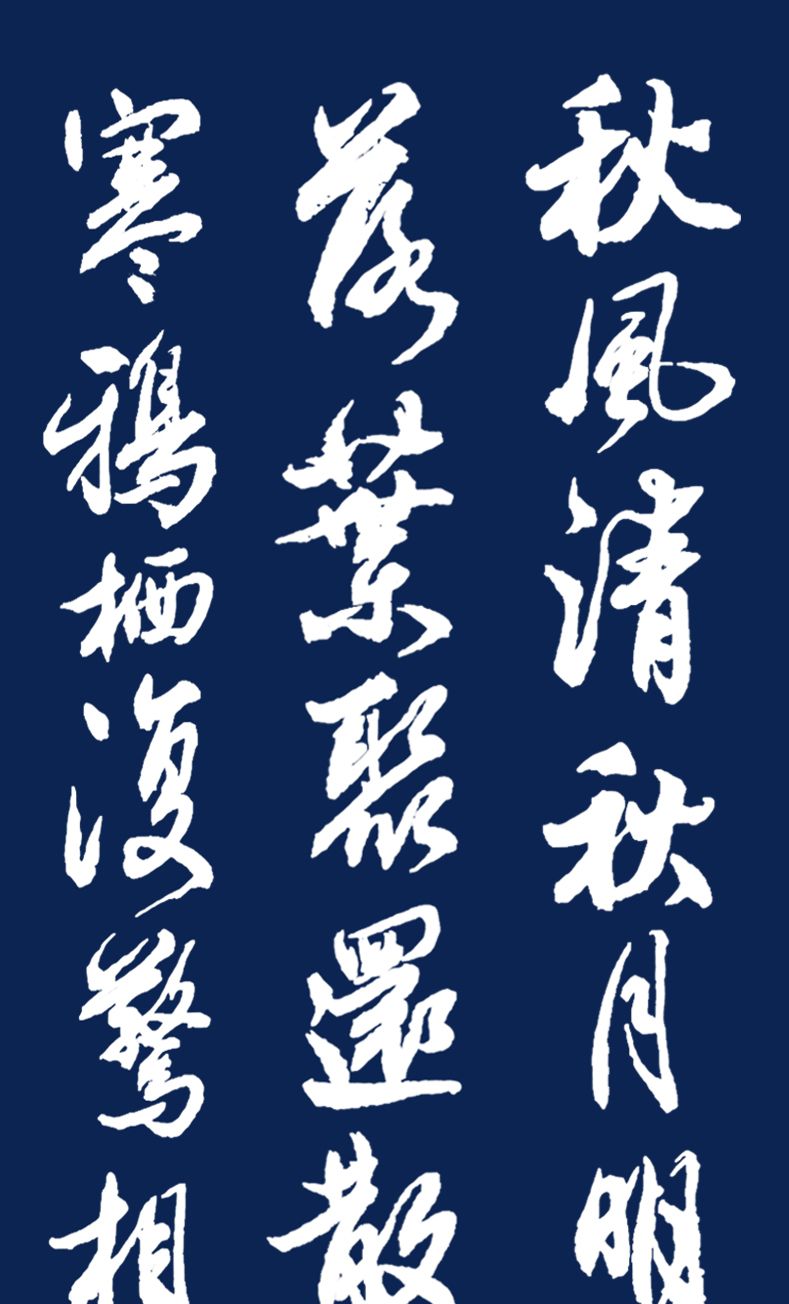 秋風清秋月明
落葉聚還散
寒鴉栖復驚相